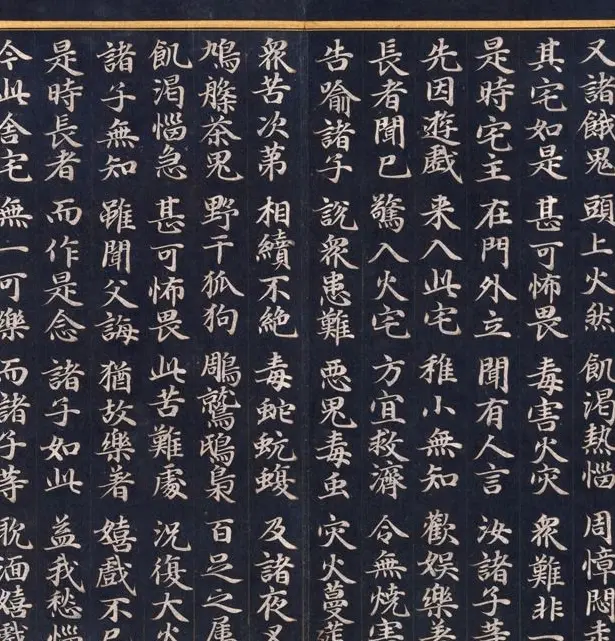 又諸餓鬼 頭上火然 飢渴熱惱 周慞悶走
其宅如是 甚可怖畏 毒害火灾 衆難非
是時宅主 在門外立 聞有人言 汝諸子等
先因遊戲 来入此宅 稚小無知 歡娛樂著
長者聞已 驚入火宅 方宜救濟 令無燒害
告喻諸子 說衆患難 惡鬼毒虫 灾火蔓莚
衆苦次第 相續不絶 毒蛇蚖蝮 及諸夜叉
鳩槃茶鬼 野干狐狗 鵰鷲鵄梟 百足之属
飢渴惱急 甚可怖畏 此苦難處 况復大火
諸子無知 雖聞父誨 猶故樂著 嬉戲不已
是時長者 而作是念 諸子如此 益我愁惱
今此舍宅 無一可樂 而諸子等 躭湎嬉戲